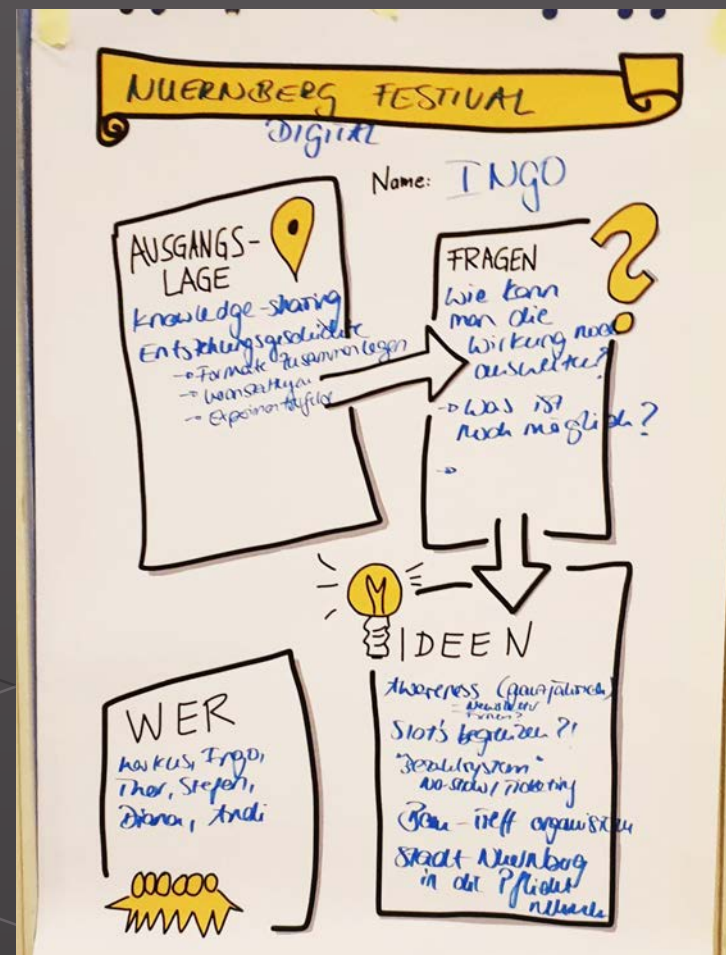 NUERNBERG FESTIVAL
DIGITAL
Name: INGO
AUSGANGS-
LAGE
Knowledge-sharing
Entstehungsgeschichte
→ Formate zusammenlegen
→
→ Experimentierfeld
FRAGEN
Wie kann
man die
Wirkung noch
ausweiten?
→ Was ist
noch möglich?
→
IDEEN
Awareness (ganzjährig)
= Newsletter
Slot's begrenzen?!
"Bezahlsystem"
No-Show / Ticketing
Treff organisieren
Stadt Nuernberg
in die Pflicht
nehmen
WER
Markus, Ingo,
Thor, Stefan,
Diana, Andi